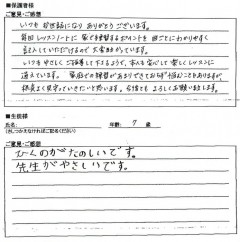 ■保護者様
ご意見・ご感想
いつもお世話になりありがとうございます。
毎回レッスンノートに家で練習するポイントを曲ごとにわかりやすく
記入していただけるので大変助かっています。
いつもやさしくご指導して下さるようで、本人も安心して楽しくレッスンに
通えています。家庭での練習があまりできておらず悩むこともありますが
根気よく見守っていきたいと思います。今後ともよろしくお願い致します。
■生徒様
氏名: 年齢: 7 歳
(さしつかえなければご記名ください)
ご意見・ご感想
ひくのがたのしいです。
先生がやさしいです。